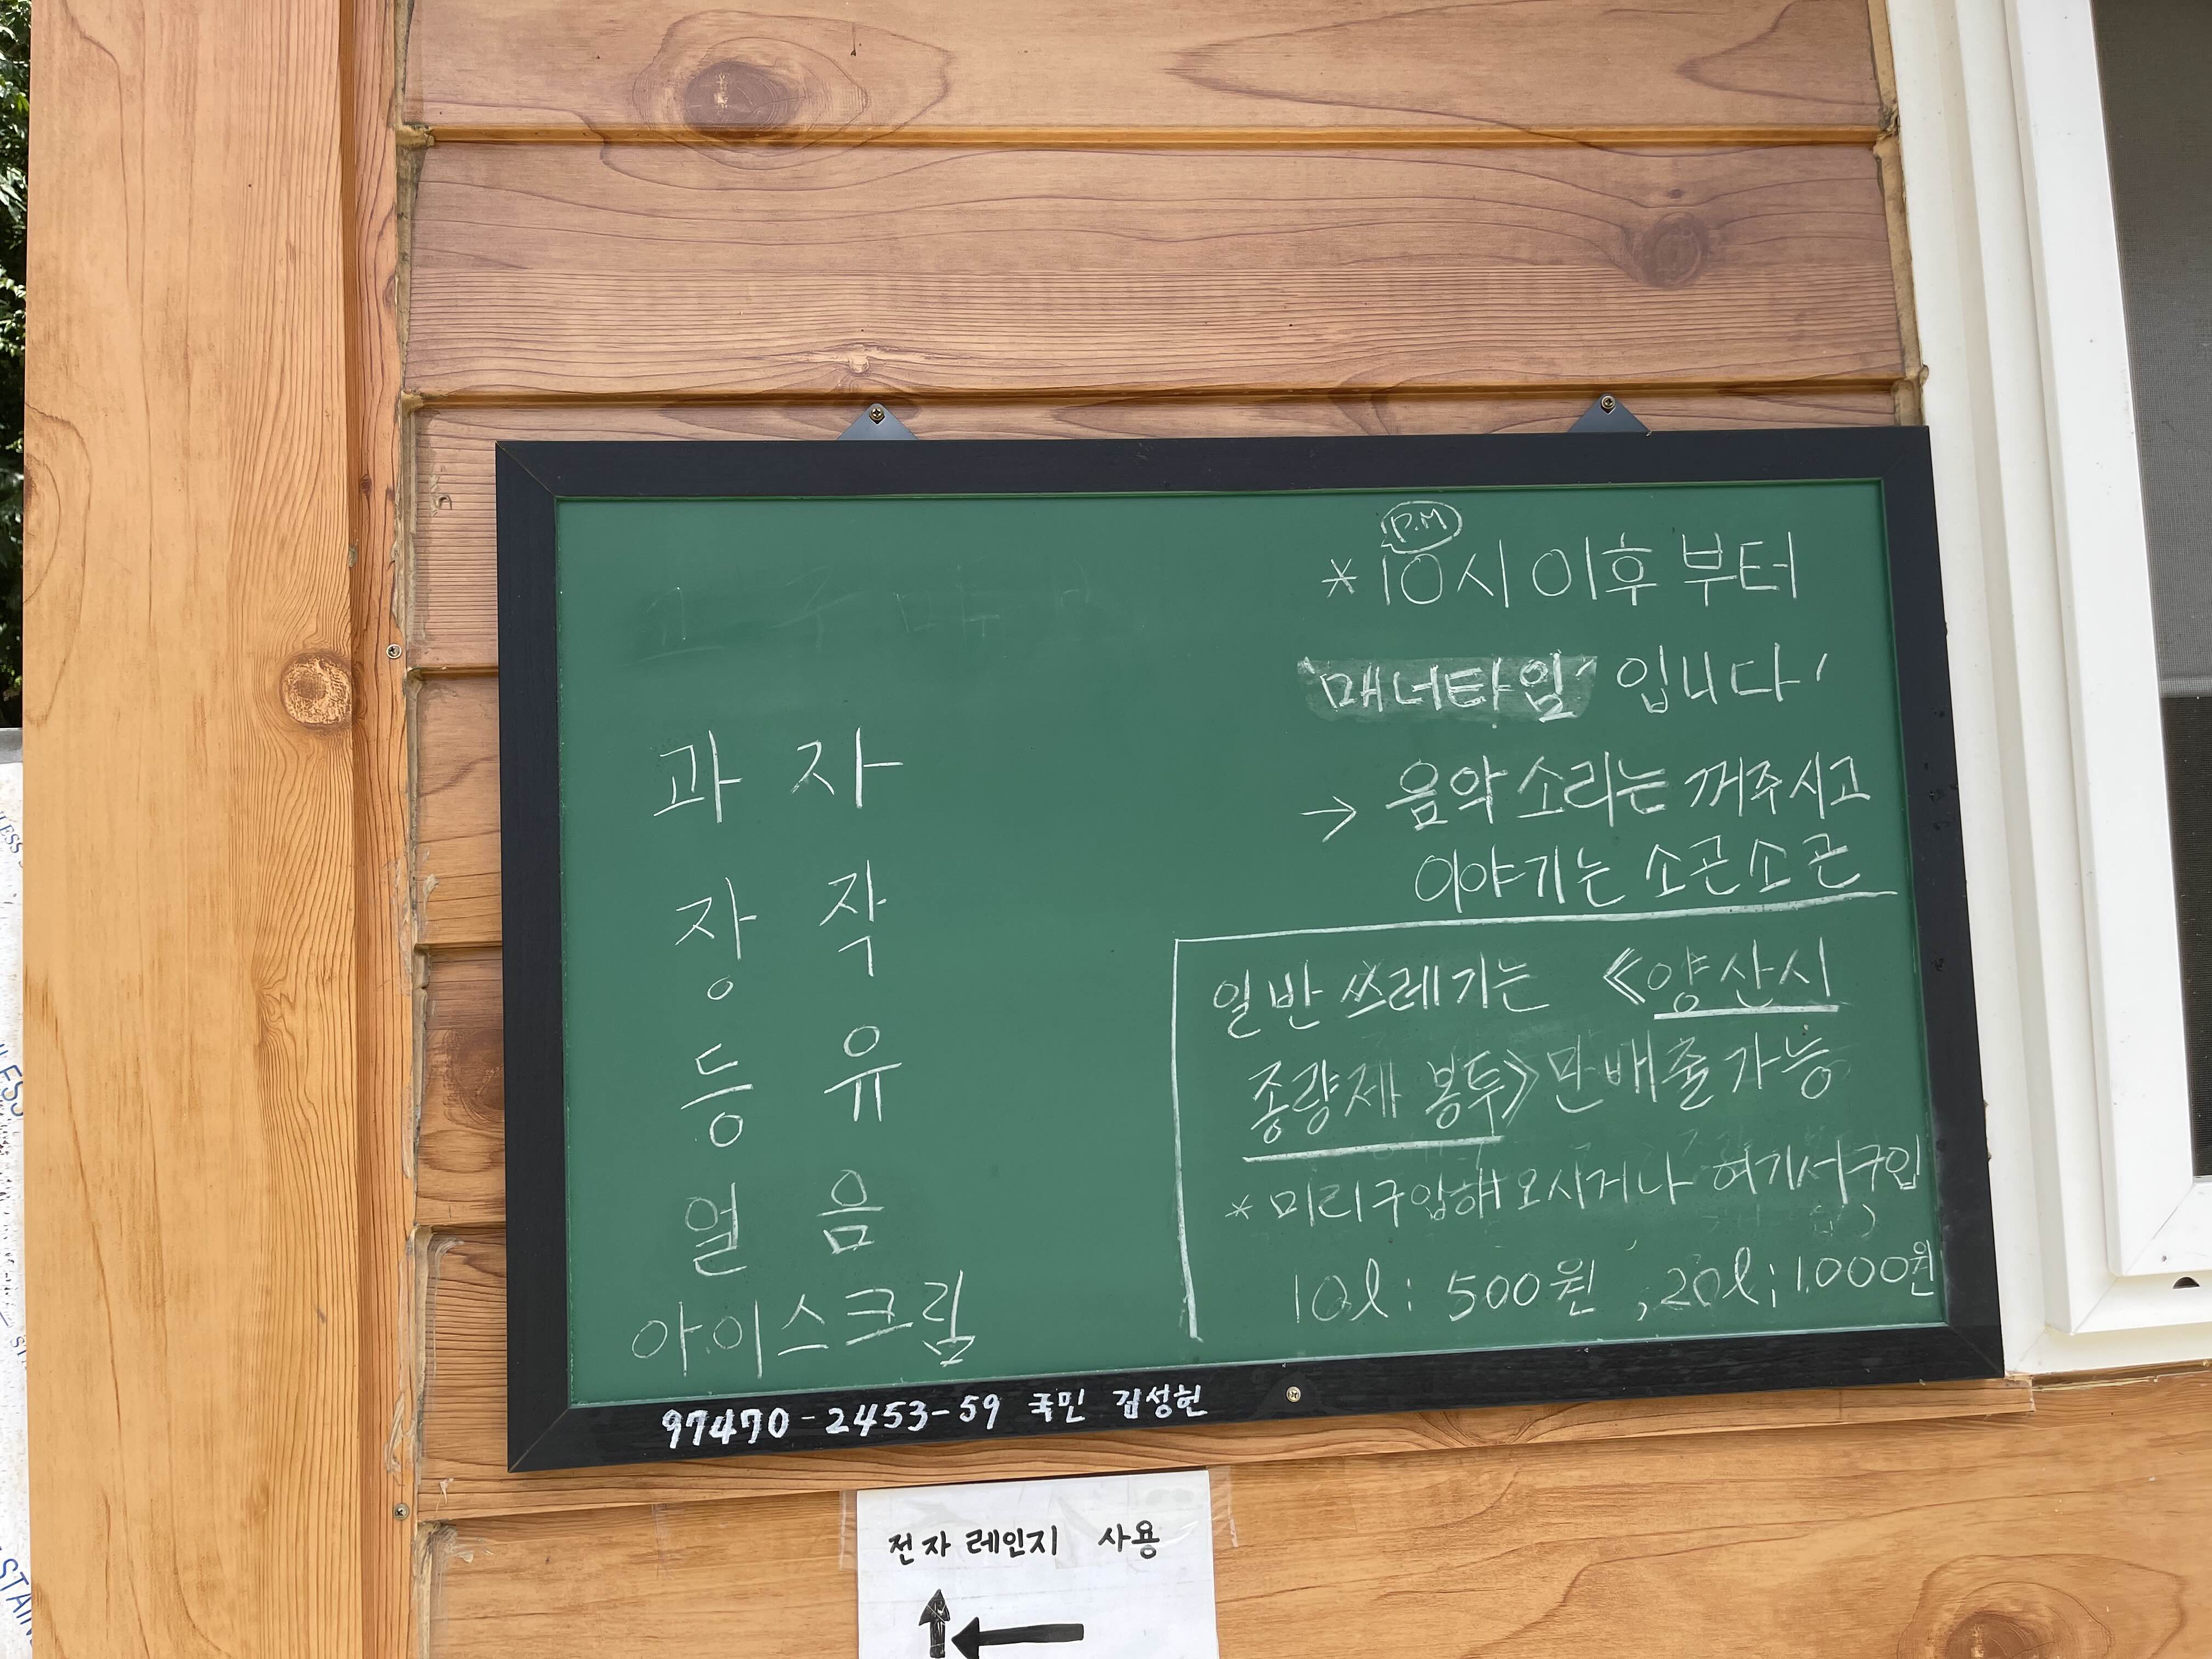 과 자
장 작
등 유
얼 음
아이스크림
P.M
* 10시 이후 부터
'매너타임' 입니다'
→ 음악소리는 꺼주시고
이야기는 소곤소곤
일반쓰레기는 《양산시
종량제 봉투》만배출가능
* 미리구입해오시거나 여기서구입
10l : 500원 , 20l ; 1.000원
97470-2453-59 국민 김성헌
전자 레인지 사용